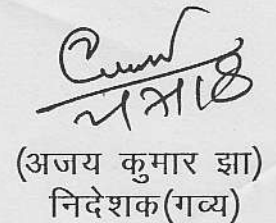 (अजय कुमार झा)
निदेशक(गव्य)